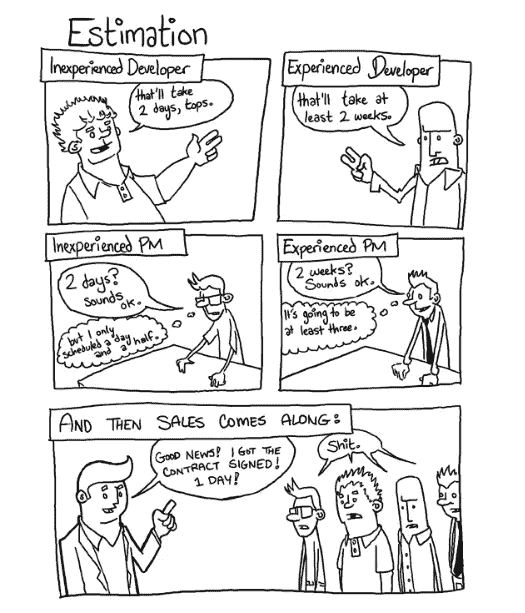 Estimation
Inexperienced Developer
that'll take
2 days, tops.
Experienced Developer
that'll take at
least 2 weeks.
Inexperienced PM
2 days?
Sounds
ok.
but I only
scheduled a day
and a half.
Experienced PM
2 weeks?
Sounds ok.
It's going to be
at least three.
AND THEN SALES COMES ALONG:
GOOD NEWS! I GOT THE
CONTRACT SIGNED!
1 DAY!
Shit.